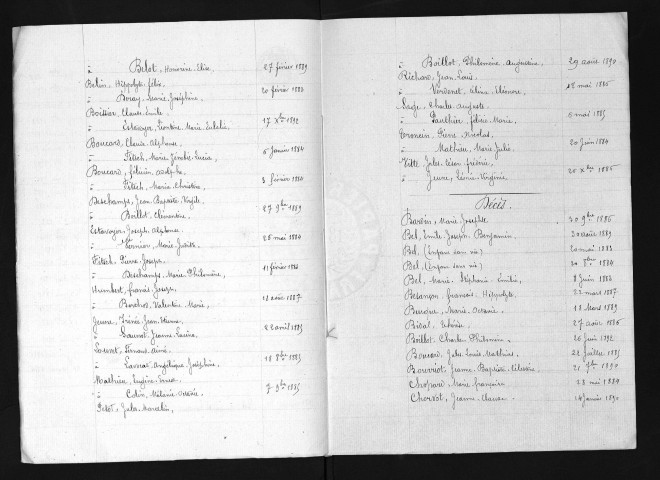 à Belot, Honorine Elise. 27 février 1889
Belin, Hippolyte félix.
à Boray, Marie Joséphine, 20 février 1883
Boitier, Claude Emile.
à Estavoyer, Léontine Marie Eulalie 17 Xbre 1892
Boucard, Claude Alphonse
à Fétsch, Marie Jennlie Lucie, 5 Janvier 1884
Boucard, félicien Adolphe
à Fétsch, Marie Christine, 3 février 1886
Deschamps, Jean Baptiste Virgile
à Boillot, Clémentine. 27 9bre 1889
Estavoyer, Joseph Alphonse.
à Vernier, Marie Judith. 26 mai 1884
Fétsch, Pierre Joseph.
à Deschamps, Marie Philomène, 11 février 1886
Humbert, francis Joseph.
à Borchot, Valentine Marie, 12 août 1887
Jeune, Irénée Jean Etienne.
à Gauvot, Jeanne Laure 22 avril 1885
Louvot, Fernand Aimé
à Lavrut, Angélique Joséphine, 18 8bre 1885
Mathieu, Eugène
à Colin, Mélanie Octavie, 7 9bre 1885
Petot, Jules Marcelin,
à Boillot, Philomène Augustine. 29 août 1890
Richard, Jean Louis.
à Verdenet, Célina Eléonore. 18 mai 1886
Sage, Charles Auguste.
à Gauthier, félicie Marie, 6 mai 1885
Tronein, Pierre Nicolas,
à Mathieu, Marie Julie. 20 Juin 1884
Viette, Jules César frédéric,
à Jeune, Léonie Virginie. 20 Xbre 1885
Décès.
Bardin, Marie Josephte 30 9bre 1886
Bel, Emile Joseph Benjamin. 20 août 1889
Bel, (Enfant sans vie) 20 mai 1883
Bel, (Enfant sans vie) 30 7bre 1884
Bel, Marie Stéphanie Emélie, 8 Juin 1884
Besançon, francois Hippolyte, 22 mars 1887
Marie Octavie. 11 Mars 1889
Bidal, Thérèse. 27 août 1886
Boillot, Charles Philomène. 26 Juin 1892
Boucard, Jules Louis Mathias. 22 Juillet 1885
Bouvriot, Jeanne Baptiste Célestine 21 7bre 1890
Chopard, Marie françoise 23 mai 1884
Chorvot, Jeanne Claude 14 Janvier 1890